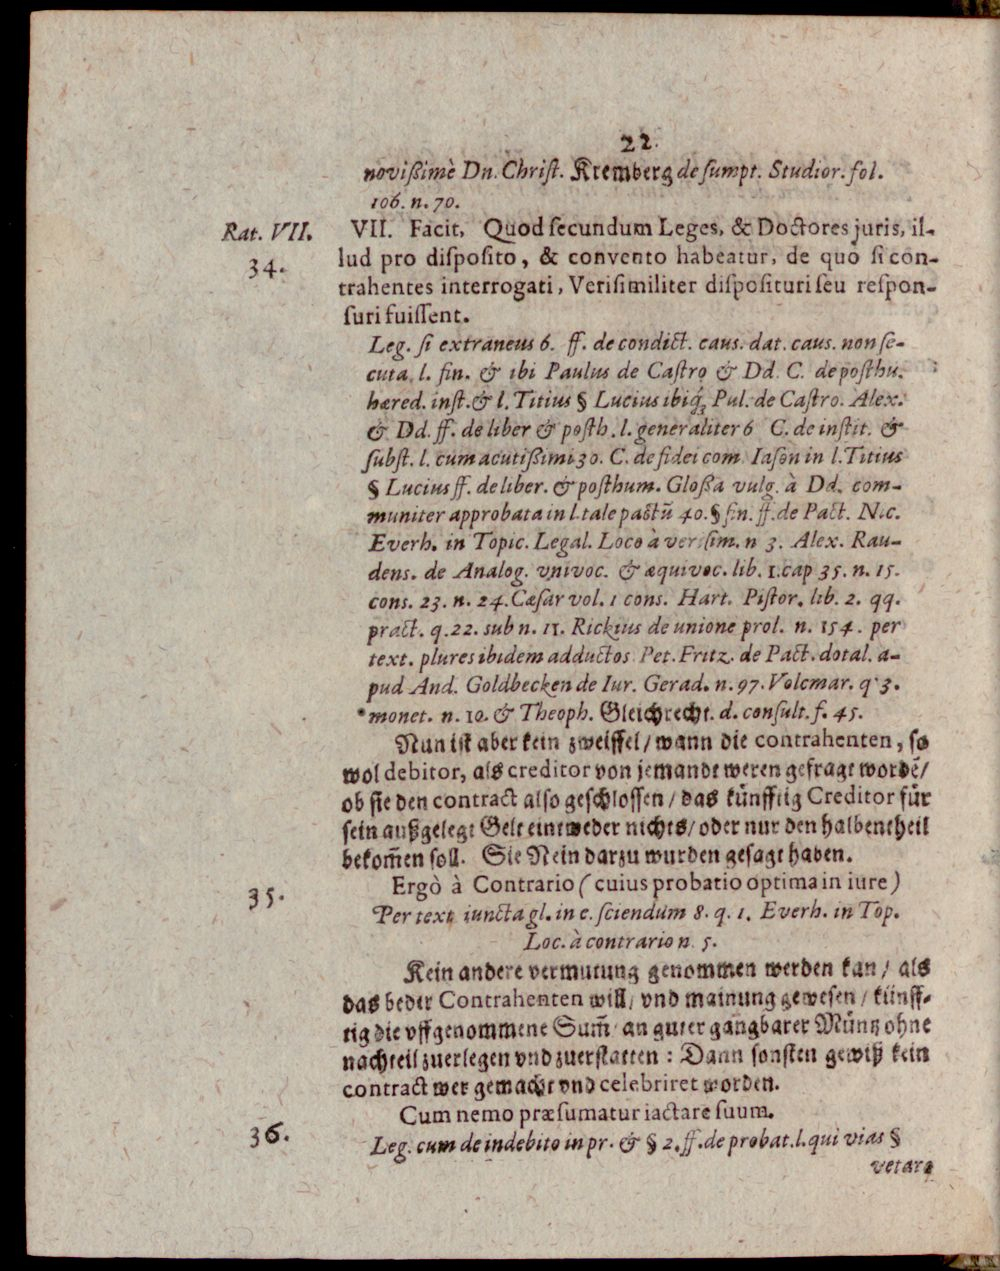 22.
novißimè Dn. Christ. Kremberg de sumpt. Studior. fol.
106. n. 70.
Rat. VII. VII. Facit, Quod secundum Leges, & Doctores juris, il-
34. lud pro disposito, & convento habeatur, de quo si con-
trahentes interrogati, Verisimiliter disposituri seu respon-
suri fuissent.
Leg. si extraneus 6. ff. de condict. caus. dat. caus. non se-
cuta. l. fin. & ibi Paulus de Castro & Dd. C. de posthu.
hæred. inst. & l. Titius § Lucius ibiq́; Pul. de Castro. Alex.
& Dd. ff. de liber & posth. l. generaliter 6 C. de instit. &
subst. l. cum acutißimi 30. C. de fidei com. Iason in l. Titius
§ Lucius ff. de liber. & posthum. Gloßa vulg. à Dd. com-
muniter approbata in l. tale pactũ 40. § fin. ff. de Pact. Nic.
Everh. in Topic. Legal. Loco à verisim. n 3. Alex. Rau-
dens. de Analog. vnivoc. & æquivoc. lib. 1. cap 35. n. 15.
cons. 23. n. 24. Cæsar vol. 1 cons. Hart. Pistor. lib. 2. qq.
pract. q. 22. sub n. 11. Rickius de unione prol. n. 154. per
text. plures ibidem adductos Pet. Fritz. de Pact. dotal. a-
pud And. Goldbecken de Iur. Gerad. n. 97. Volcmar. q. 3.
monet. n. 10. & Theoph. Gleichrecht. d. consult. f. 45.
Nun ist aber kein zweiffel / wann die contrahenten, so
wol debitor, als creditor von jemandt weren gefragt wordẽ /
ob sie den contract also geschlossen / das künfftig Creditor für
sein außgelegt Gelt eintweder nichts / oder nur den halbentheil
bekom̃en soll. Sie Nein darzu wurden gesagt haben.
35. Ergò à Contrario (cuius probatio optima in iure)
Per text. iuncta gl. in c. sciendum 8. q. 1. Everh. in Top.
Loc. à contrario n. 5.
Kein andere vermutung genommen werden kan / als
das beder Contrahenten will / vnd mainung gewesen / künff-
tig die vffgenommene Sum̃ an guter gangbarer Müntz ohne
nachteil zuerlegen vnd zuerstatten : Dann sonsten gewiß kein
contract wer gemacht vnd celebriret worden.
Cum nemo præsumatur iactare suum.
36. Leg. cum de indebito in pr. & § 2. ff. de probat. l. qui vias §
vetare